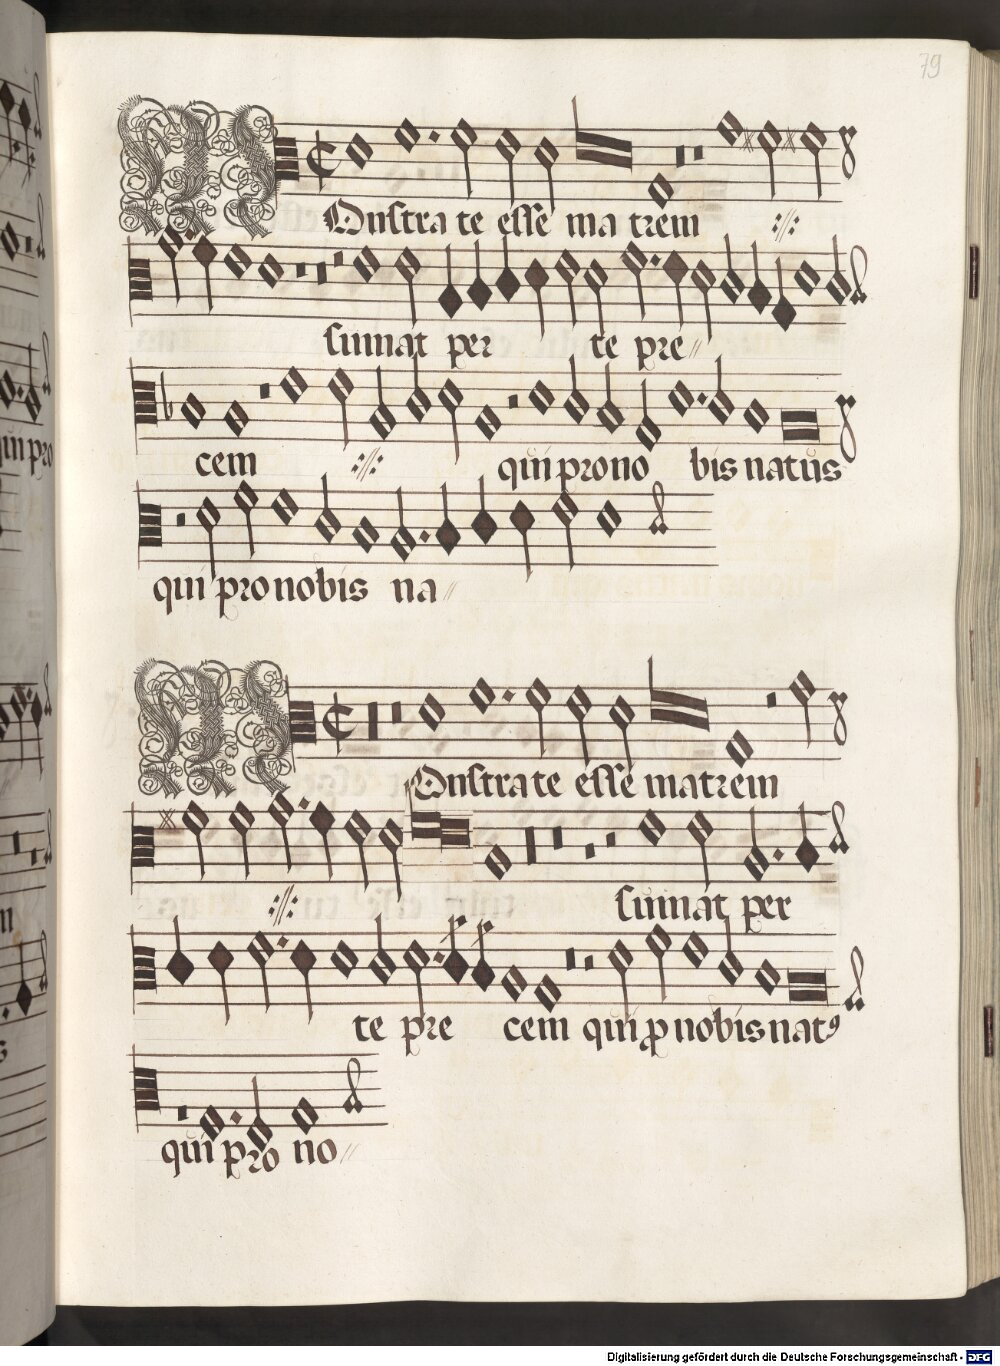 79
MOnstra te esse ma trem
sumat per te pre
cem qui pro no bis natus
qui pro nobis na
MOnstra te esse matrem
sumat per
te pre cem qui ꝓ nobis natꝰ
qui pro no
qui pro
Digitalisierung gefördert durch die Deutsche Forschungsgemeinschaft - DFG